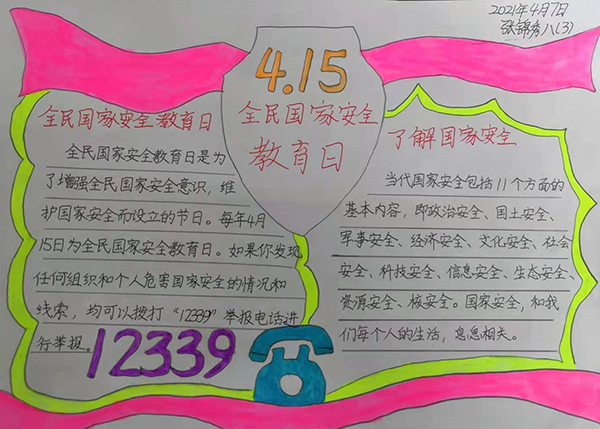 2021年4月7日
张锦秀八(3)
4.15
全民国家安全
教育日
全民国家安全教育日
全民国家安全教育日是为
了增强全民国家安全意识，维
护国家安全而设立的节日。每年4月
15日为全民国家安全教育日。如果你发现
任何组织和个人危害国家安全的情况和
线索，均可以拨打“12339”举报电话进
行举报。
12339
了解国家安全
当代国家安全包括11个方面的
基本内容，即政治安全、国土安全、
军事安全、经济安全、文化安全、社会
安全、科技安全、信息安全、生态安全、
资源安全、核安全。国家安全，和我
们每个人的生活，息息相关。